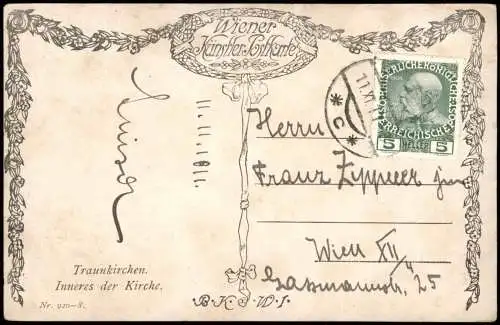 Wiener
Künstler-Postkarte
11. 11. 911.
11.XI.11
* C *
KAISERLICHEKÖNIGLICHE
ÖSTERREICHISCHE POST
5 HELLER 5
Herrn
Franz Zippeer jun
Wien XII/4
Gassmannstr, 25
Traunkirchen.
Inneres der Kirche.
Nr. 920-8.
B. K. W. I.